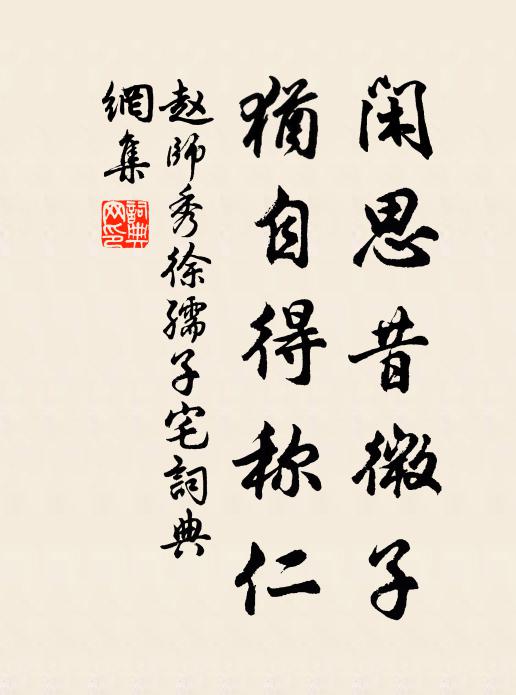 闲思昔微子
犹自得称仁
赵师秀徐孺子宅詞典
網集
詞典
网印